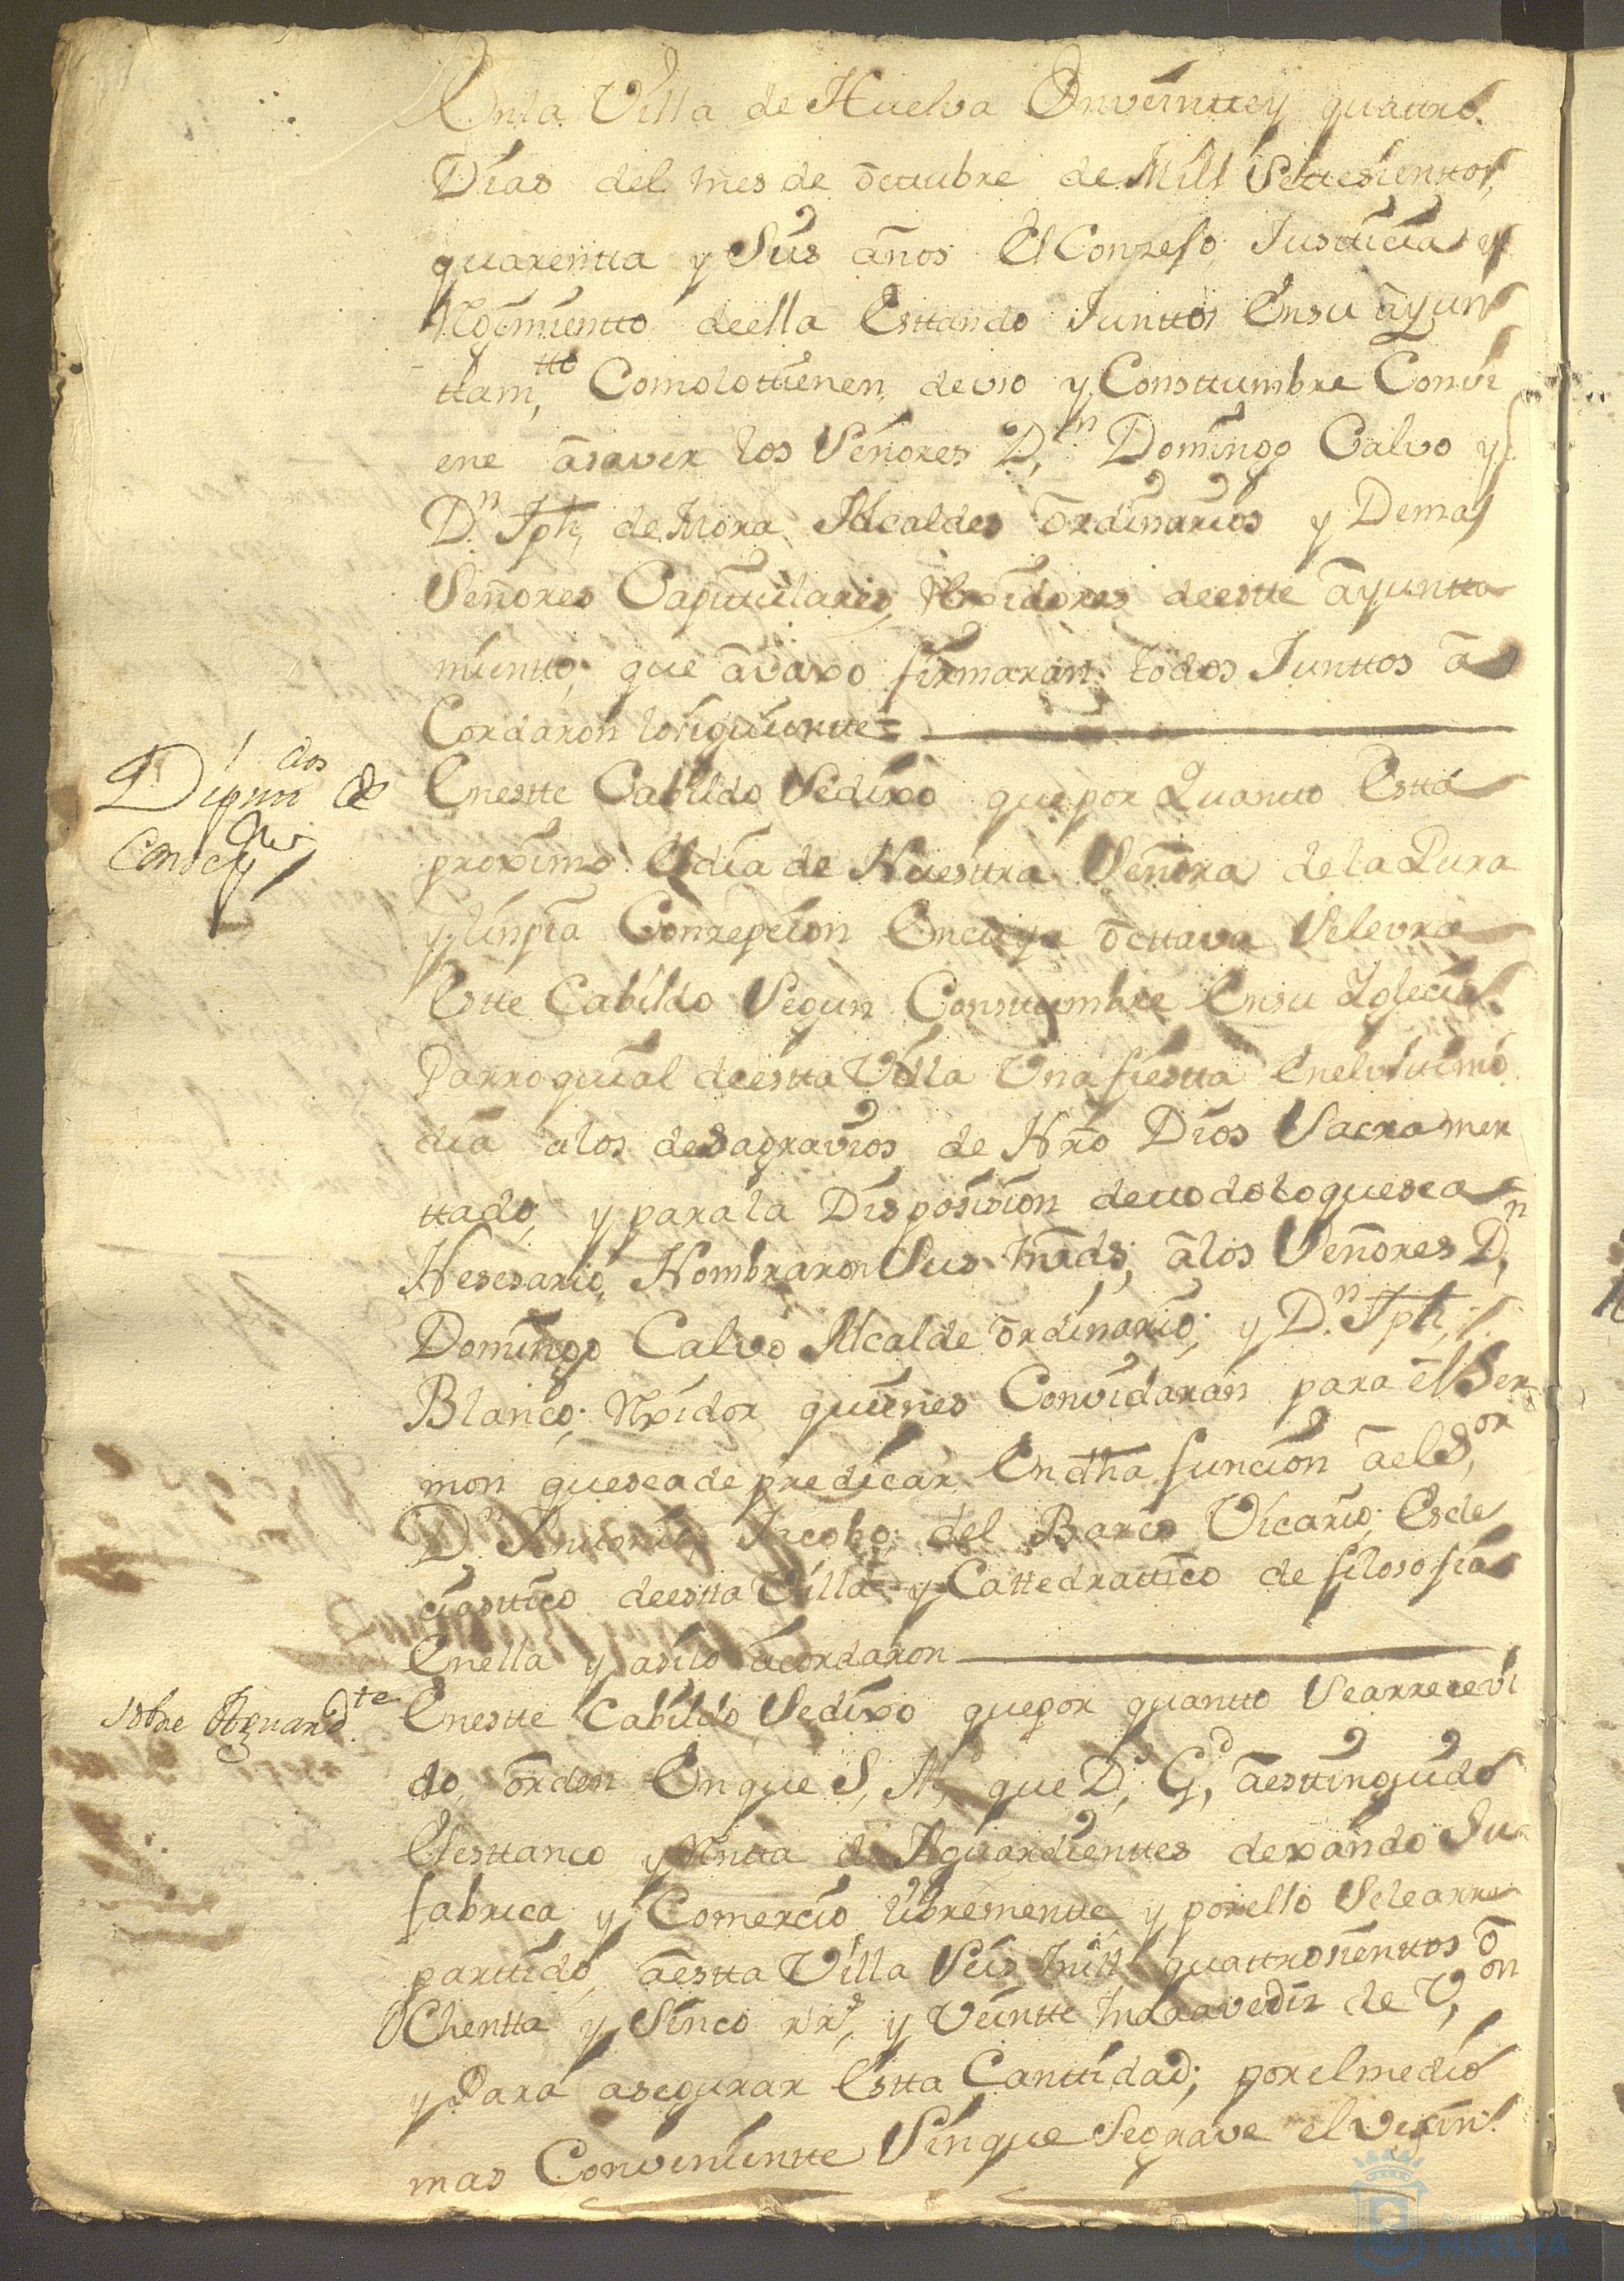 Enla Villa de Huelva Enveintte y quattro
Dias del mes de octtubre de Mill Settesienttos
quarentta y Seis años El Conzejo Justticia y
Reximientto de ella Esttando Junttos Ensu ayun
ttam.tto Comolottienen de vso y Consttumbre Convi
ene asaver los Señores D.n Domingo Calvo y
D.n Jph de Mora Alcaldes ordinarios y Demas
Señores Capittulares, Rexidores deestte ayuntta
mientto, que avaxo firmaran todos Junttos a
Cordaron losiguientte =
Dip.dos de
Concep.on
Enestte Cabildo Sedixo quepor Quantto Estta
proximo Eldia de Nuesttra Señora de la Pura
y linpia Conzepcion Encuya octtava Selevra
Estte Cabildo Segun Consttumbre Ensu Yglecia
Parroquial deestta Villa Una fiestta Enelvlttimo
dia alos desagravios de Nrõ Dios Sacramen
ttado, y parala Disposision dettodoloquesea
Nesesario, Nombraron Sus mrds, alos Señores D.n
Domingo Calvo Alcalde ordinario, y D.n Jph
Blanco, Rexidor quienes Convidaran para elSer
mon queseade predicar Endha funcion ael S.or
D.n Anttonio Jacobo del Barco Vicario Ecle
ciasttico deestta Villa y Cattedrattico de filosofia
Enella y asilo acordaron
sobre Aguard.te
Enestte Cabildo Sedixo quepor quantto Searrecevi
do orden Enque S, M, que D, G, aesttinguido
Elesttanco y Rentta de Aguardienttes dexando Su
fabrica y Comercio librementte y porello Selearre
parttido aestta Villa Seis mill quattrosienttos o
Chentta y Sinco rr.s y Veintte maravedis de V.on
y Para asegurar Estta Canttidad, porelmedio
mas Convenientte Sinque Segrave el vesin
Ayuntamiento
HUELVA